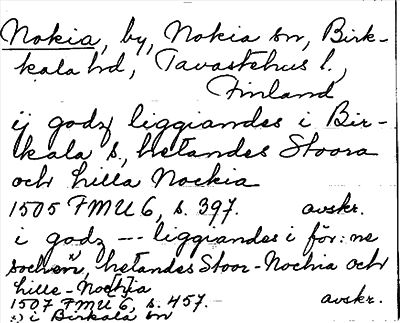 Nokia, by, Nokia sn, Birk-
kala hd, Tavastehus l.,
Finland
ij godz liggiandes i Bir-
kala s, hetandes Stoora
och lilla Nockia
1505 FMU 6, s. 397. avskr.
i godz --- liggiandes i för:ne
sochen, hetandes Stoor-Nochia och
lille-Nochia
1507 FMU 6, s. 457. avskr.
i Birkala sn